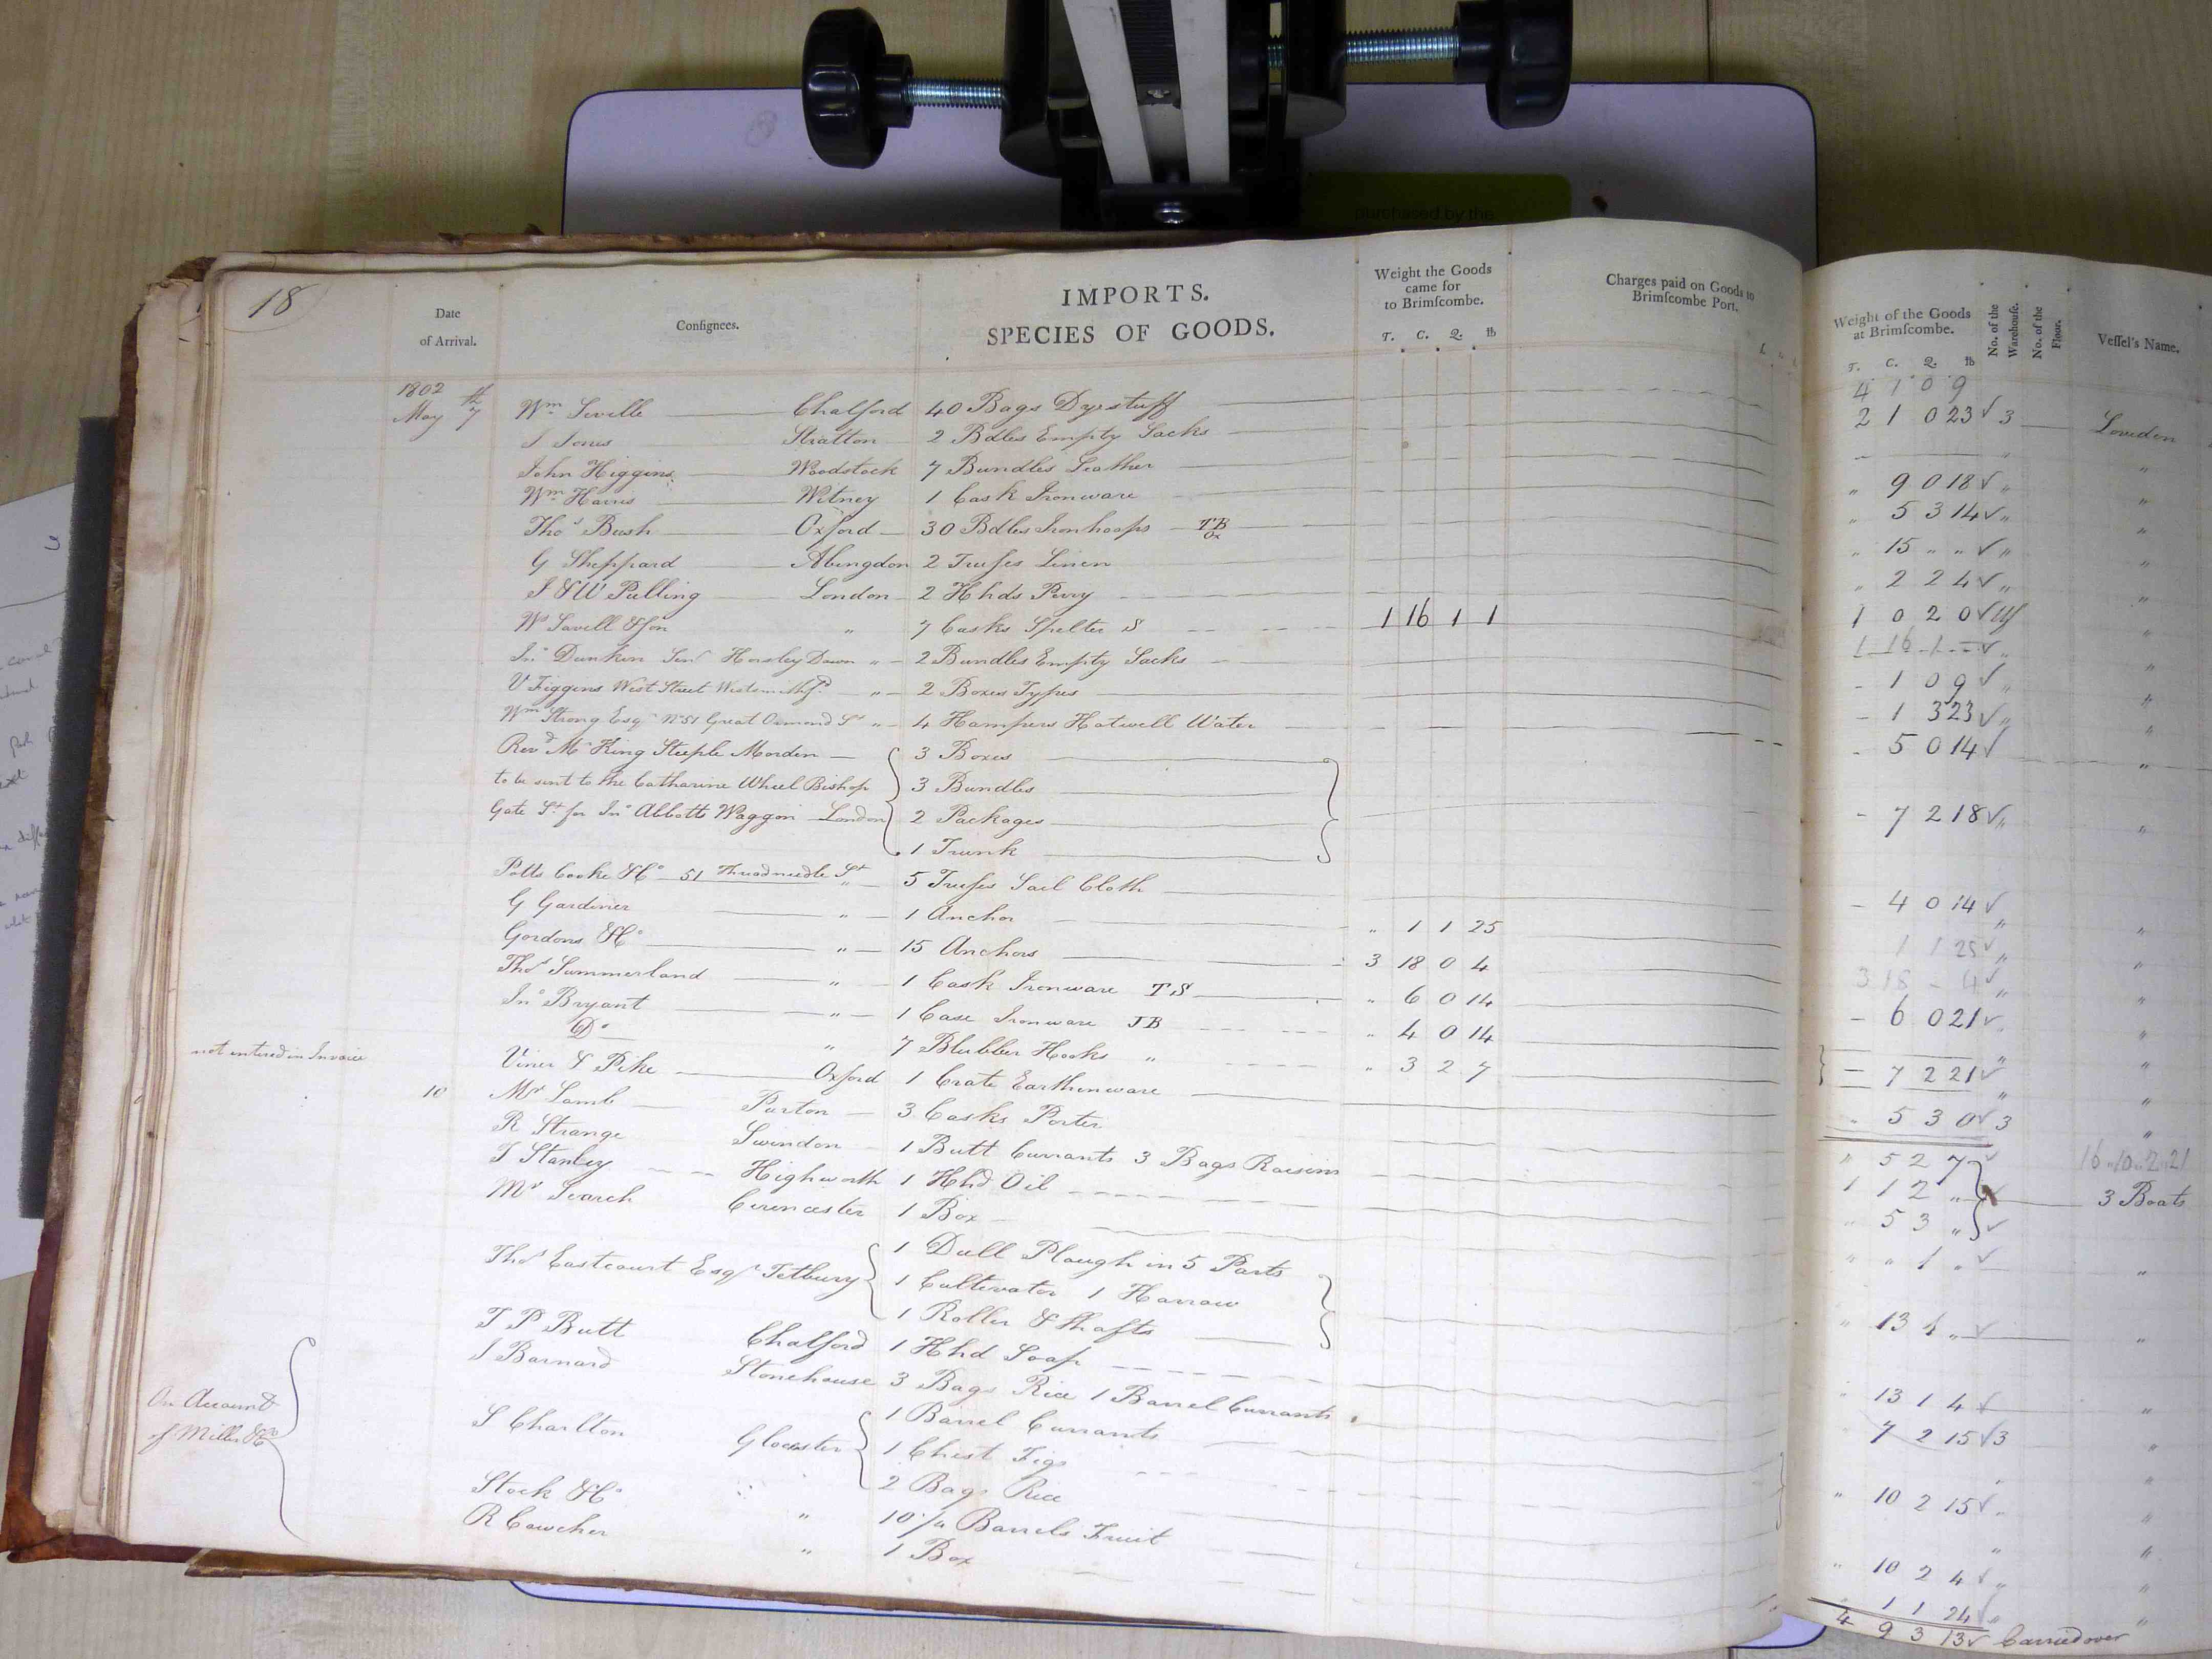 purchased by the
18
Date of Arrival.
Consignees.
IMPORTS.
SPECIES OF GOODS.
Weight the Goods came for to Brimſcombe.
T. C. Q. ℔
Charges paid on Goods to Brimſcombe Port.
Weight of the Goods at Brimſcombe.
T. C. Q. ℔
No. of the Warehouſe.
No. of the Floor.
Veſſel's Name.
4 1 0 9
1802 May 7th Wm Seville Chalford 40 Bags Dyestuff 2 1 0 23 √ 3 Loveden
J Jones Stratton 2 Bdles Empty Sacks
John Higgins Woodstock 7 Bundles Leather " 9 0 18 √ "
Wm Harris Witney 1 Cask Ironware " 5 3 14 √ "
Thos Bush Oxford 30 Bdles Ironhoops TB Ox " 15 " " √ "
G Sheppard Abingdon 2 Truſses Linen " 2 2 4 √ "
J & W Pulling London 2 Hhds Perry 1 0 2 0 √
Wm Savill & Son " 7 Casks Spelter S 1 16 1 1 1 16 1 - √ "
Jno Dunkin Senr Horsley Down " 2 Bundles Empty Sacks - 1 0 9 √ "
V Figgins West Street " 2 Boxes Types - 1 3 23 √ "
Wm Strong Esqr No 51 Great Ormond St " 4 Hampers Hotwell Water - 5 0 14 √
Revd Mr King Steeple Morden 3 Boxes
to be sent to the Catharine Wheel Bishop 3 Bundles - 7 2 18 √ "
Gate St for Jno Abbotts Waggon London 2 Packages
1 Trunk
Potts Cooke & Co 51 Threadneedle St " 5 Truſses Sail Cloth - 4 0 14 √
G Gardiner " 1 Anchor " 1 1 25 1 1 25 √ "
Gordons & Co " 15 Anchors 3 18 0 4 3 18 - 4 √ "
Thos Summerland " 1 Cask Ironware TS " 6 0 14 - 6 0 21 √
Jno Bryant " 1 Case Ironware JB " 4 0 14
Do " 7 Blubber Hooks " " 3 2 7 - 7 2 21 √ "
not entered in Invoice Viner & Pike Oxford 1 Crate Earthenware " 5 3 0 √ 3
16 " 10 " 2 " 21
10 Mr Lamb Purton 3 Casks Porter " 5 2 7 √
R Strange Swindon 1 Butt Currants 3 Bags Raisins 1 1 2 " 3 Boats
T Stanley Highworth 1 Hhd Oil " 5 3 " √
Mr Search Cirencester 1 Box " " 1 " √ "
Thos Eastcourt Esqr Tetbury 1 Dull Plough in 5 Parts
1 Cultivator 1 Harrow " 13 4 " √ "
1 Roller & Shafts
T P Butt Chalford 1 Hhd Soap " 13 1 4 √ "
J Barnard Stonehouse 3 Bags Rice 1 Barrel Currants 7 2 15 √ 3 "
On Account of Miller & Co
S Charlton Glocester 1 Barrel Currants
1 Chest Figs " 10 2 15 √ "
2 Bags Rice
Stock & Co " 10/4 Barrels Fruit " 10 2 4 √ "
R Cowcher " 1 Box 1 1 24 √ "
4 9 3 13 √ Carried over